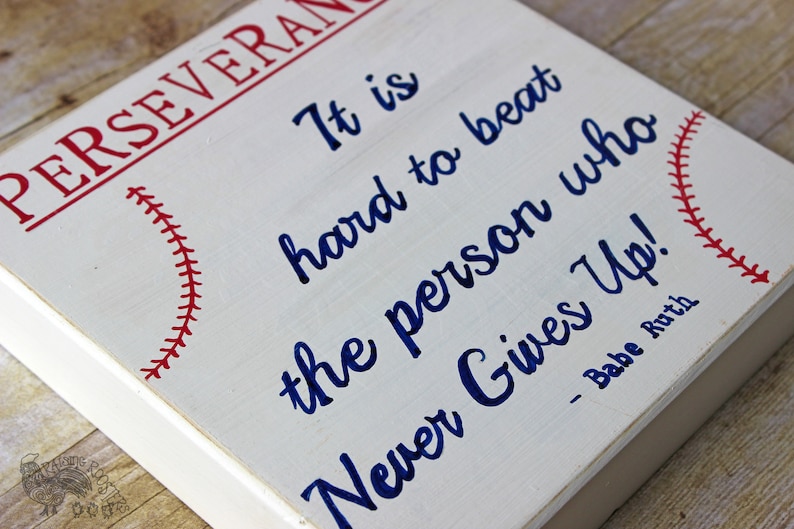 PERSEVERANC
It is
hard to beat
the person who
Never Gives Up!
- Babe Ruth
RAISING ROOSTERS